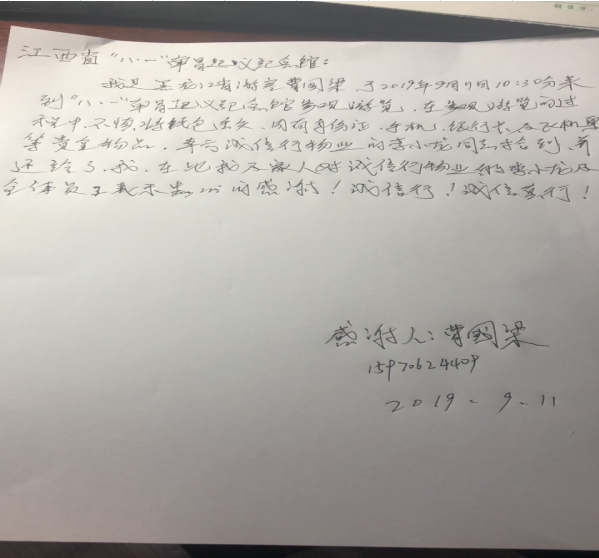 江西省“八一”南昌起议纪念馆：
我是黑龙江省游客曹国梁，于2019年9月11日10:30分来
到“八一”南昌起议纪念馆参观游览，在参观游览的过
程中，不慎将钱包丢失，内有身份证、手机、银行卡及飞机票
等贵重物品，幸亏诚信行物业的李小龙同志拾到，并
还给了我，在此我及家人对诚信行物业的李小龙及
全体员工表示衷心的感谢！诚信行！诚信真行！
感谢人：曹国梁
15970624409
2019.9.11